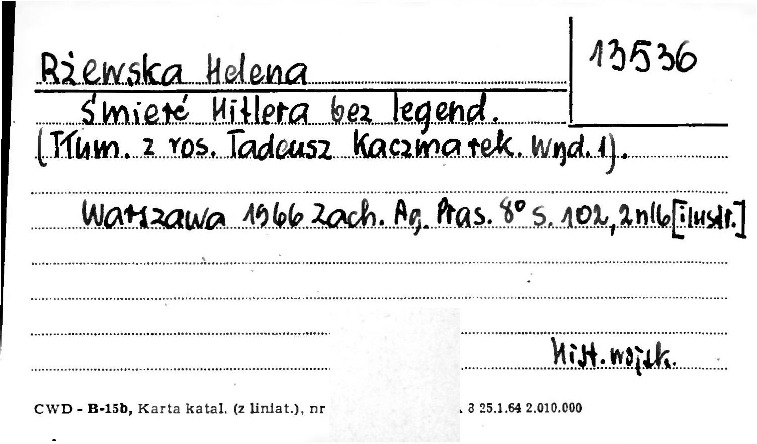 13536
Rżewska Helena
Śmierć Hitlera bez legend.
(Tłum. z ros. Tadeusz Kaczmarek. Wyd. 1).
Warszawa 1966 Zach. Ag. Pras. 8° s. 102, 2 nlb [ilustr.]
Hist. wojsk.
CWD - B-15b, Karta katal. (z liniat.), nr 8 25.1.64 2.010.000